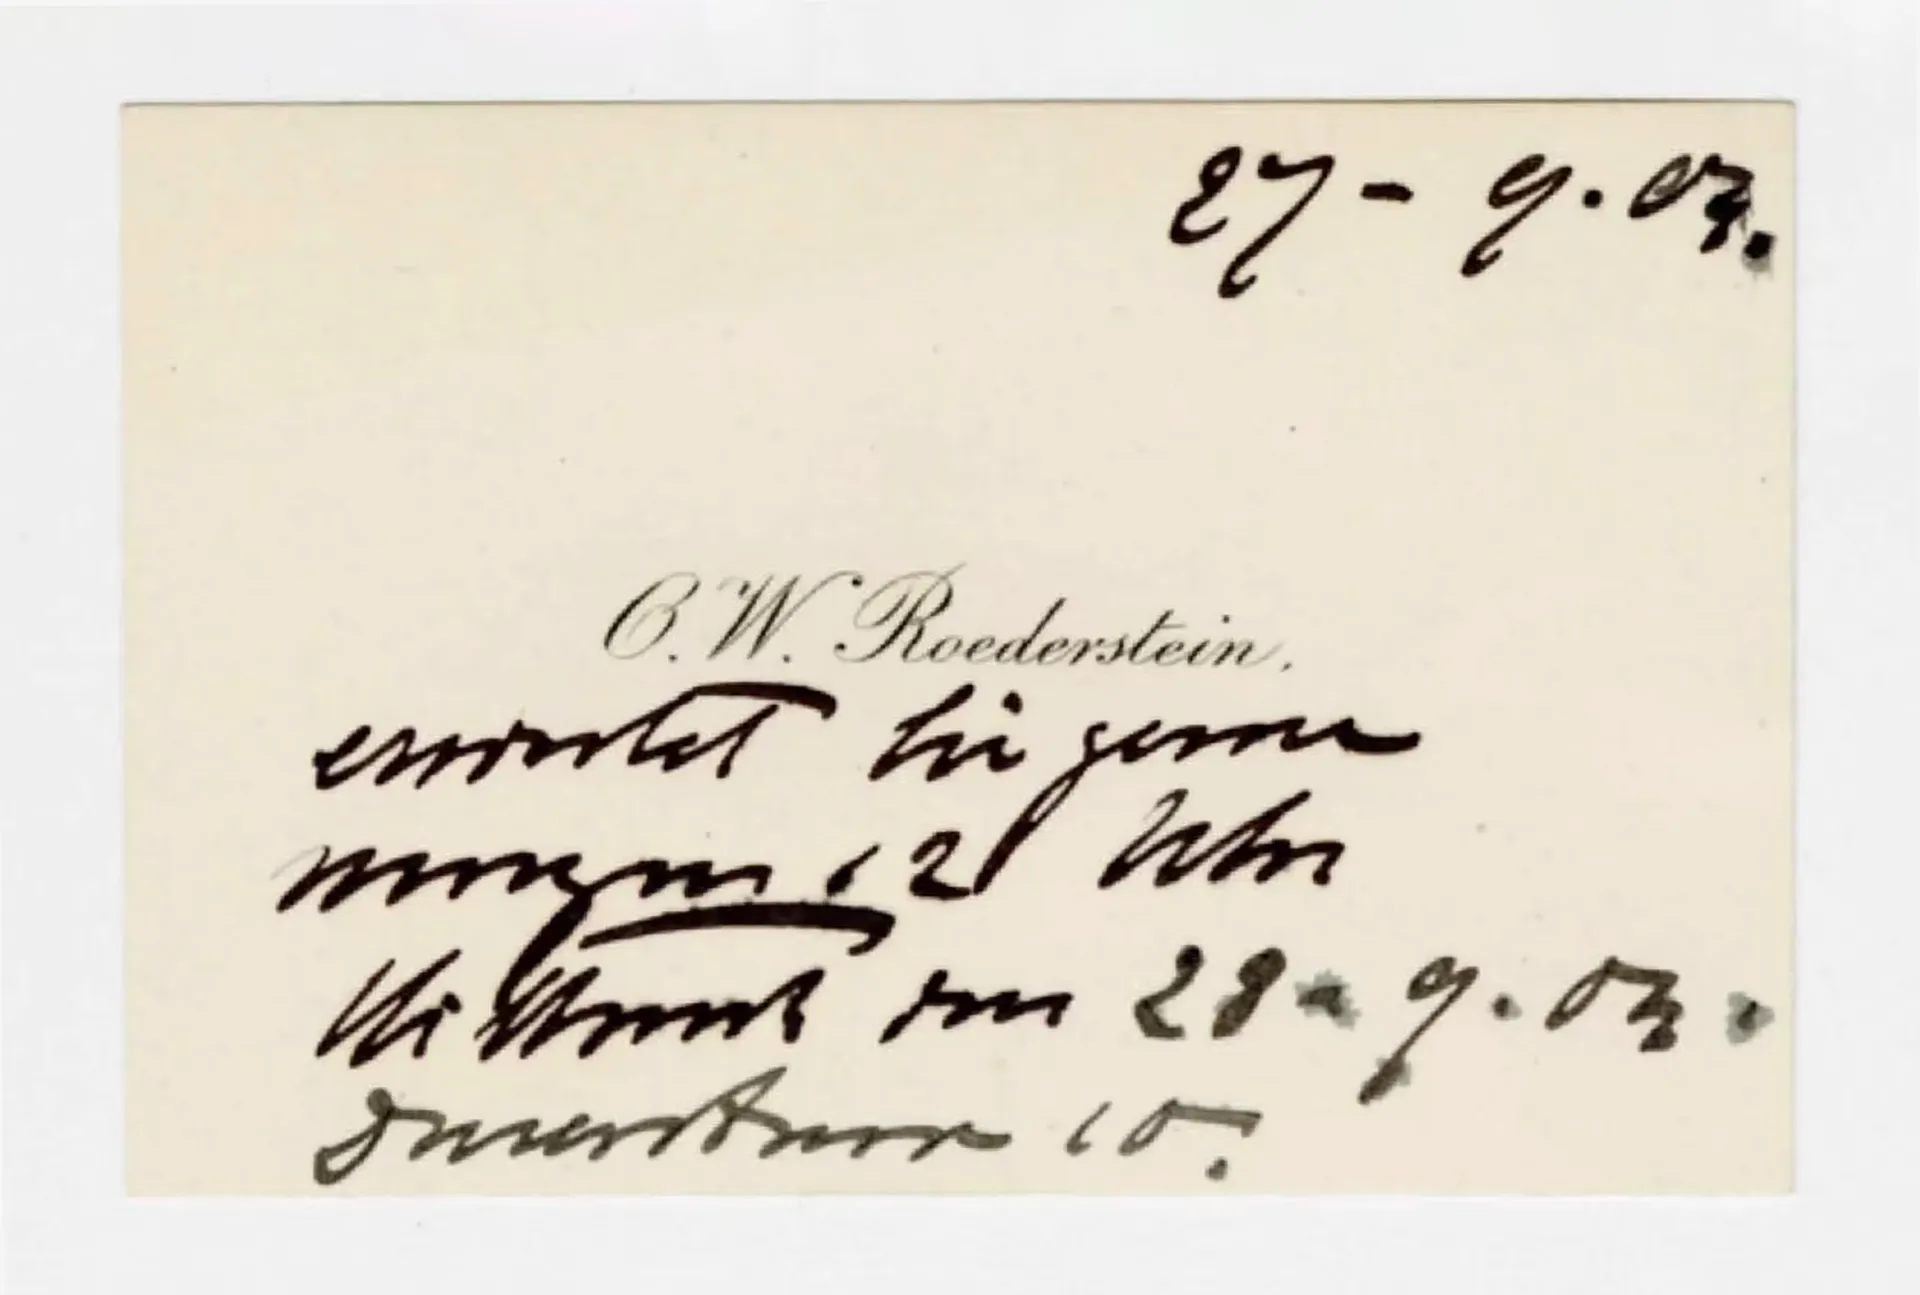 27-9.04.
O. W. Roederstein.
erwartet Sie gerne
morgen 12 Uhr
Mittwoch den 28-9.04.
Dürerstrasse 10.